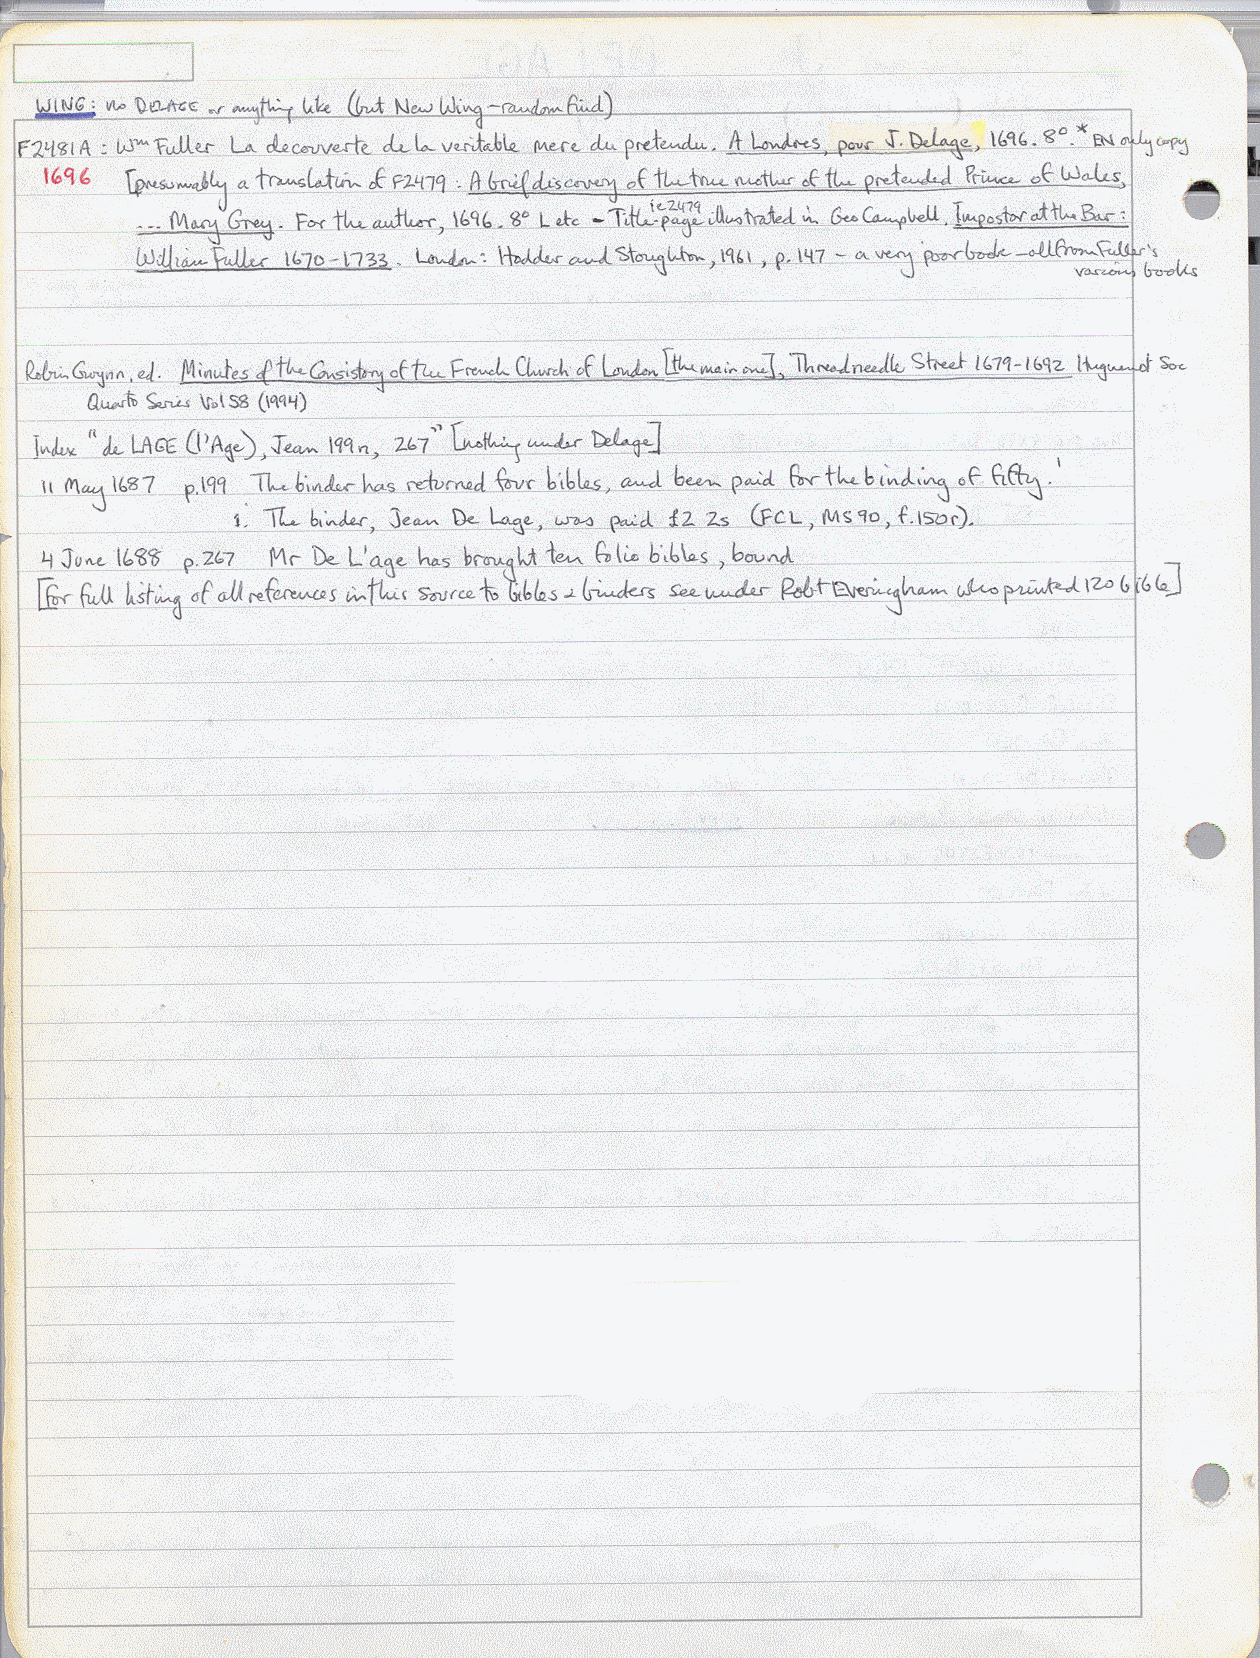 WING: no DELAGE or anything like (but New Wing - random find)
F2481A: Wm Fuller La decouverte de la veritable mere du pretendu. A Londres, pour J. Delage, 1696. 8°.* EN only copy
1696 [presumably a translation of F2479: A brief discovery of the true mother of the pretended Prince of Wales,
ie 2479
... Mary Grey. For the author, 1696. 8° L etc - Title-page illustrated in Geo Campbell, Impostor at the Bar:
William Fuller 1670-1733. London: Hodder and Stoughton, 1961, p.147 - a very poor book - all from Fuller's
various books
Robin Gwynn, ed. Minutes of the Consistory of the French Church of London [the main one], Threadneedle Street 1679-1692 Huguenot Soc
Quarto Series Vol 58 (1994)
Index "de LAGE (l'Age), Jean 199n, 267" [nothing under Delage]
11 May 1687 p.199 The binder has returned four bibles, and been paid for the binding of fifty.'
i. The binder, Jean De Lage, was paid £2 2s (FCL, MS 90, f.150r).
4 June 1688 p.267 Mr De L'age has brought ten folio bibles, bound
[for full listing of all references in this source to bibles & binders see under Robt Everingham who printed 120 bible]